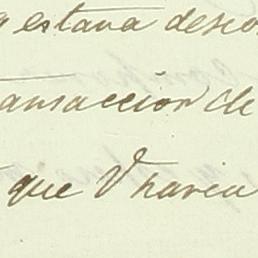 estava deseo
ansaccion de
que V haria